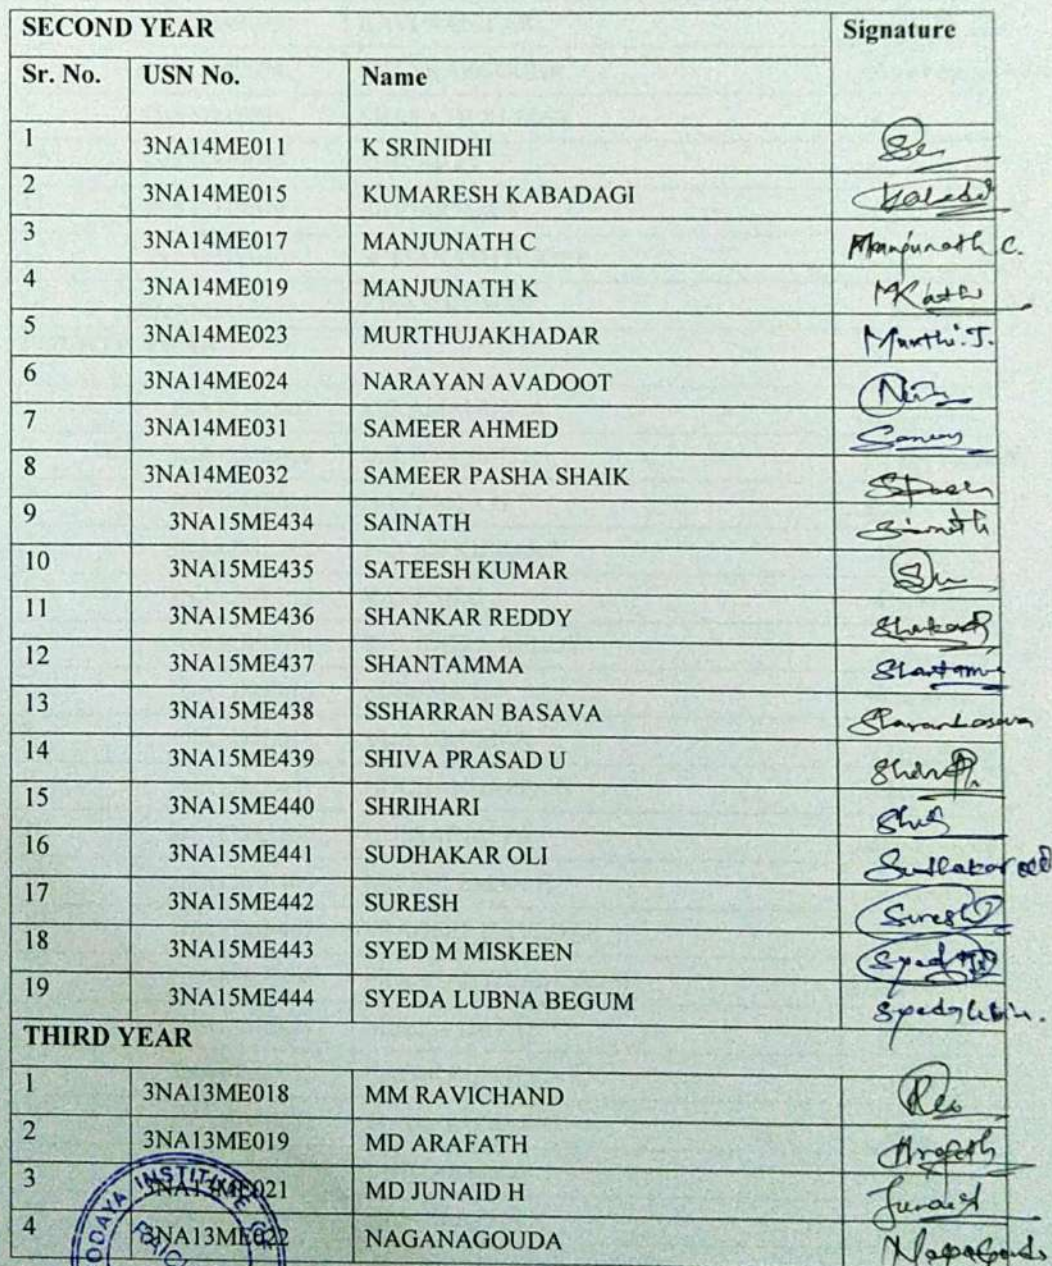 SECOND YEAR Signature
Sr. No. USN No. Name
1 3NA14ME011 K SRINIDHI
2 3NA14ME015 KUMARESH KABADAGI
3 3NA14ME017 MANJUNATH C Manjunath C.
4 3NA14ME019 MANJUNATH K
5 3NA14ME023 MURTHUJAKHADAR
6 3NA14ME024 NARAYAN AVADOOT
7 3NA14ME031 SAMEER AHMED
8 3NA14ME032 SAMEER PASHA SHAIK
9 3NA15ME434 SAINATH
10 3NA15ME435 SATEESH KUMAR
11 3NA15ME436 SHANKAR REDDY
12 3NA15ME437 SHANTAMMA
13 3NA15ME438 SSHARRAN BASAVA
14 3NA15ME439 SHIVA PRASAD U
15 3NA15ME440 SHRIHARI
16 3NA15ME441 SUDHAKAR OLI
17 3NA15ME442 SURESH Suresh
18 3NA15ME443 SYED M MISKEEN Syed
19 3NA15ME444 SYEDA LUBNA BEGUM
THIRD YEAR
1 3NA13ME018 MM RAVICHAND
2 3NA13ME019 MD ARAFATH Arafath
3 3NA13ME021 MD JUNAID H Junaid
4 3NA13ME022 NAGANAGOUDA
ODAYA INSTITUTE OF